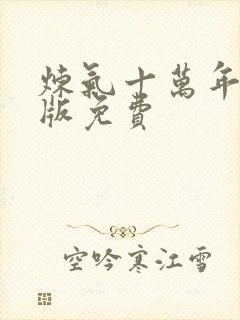 煉氣十萬年
版免費
空吟寒江雪